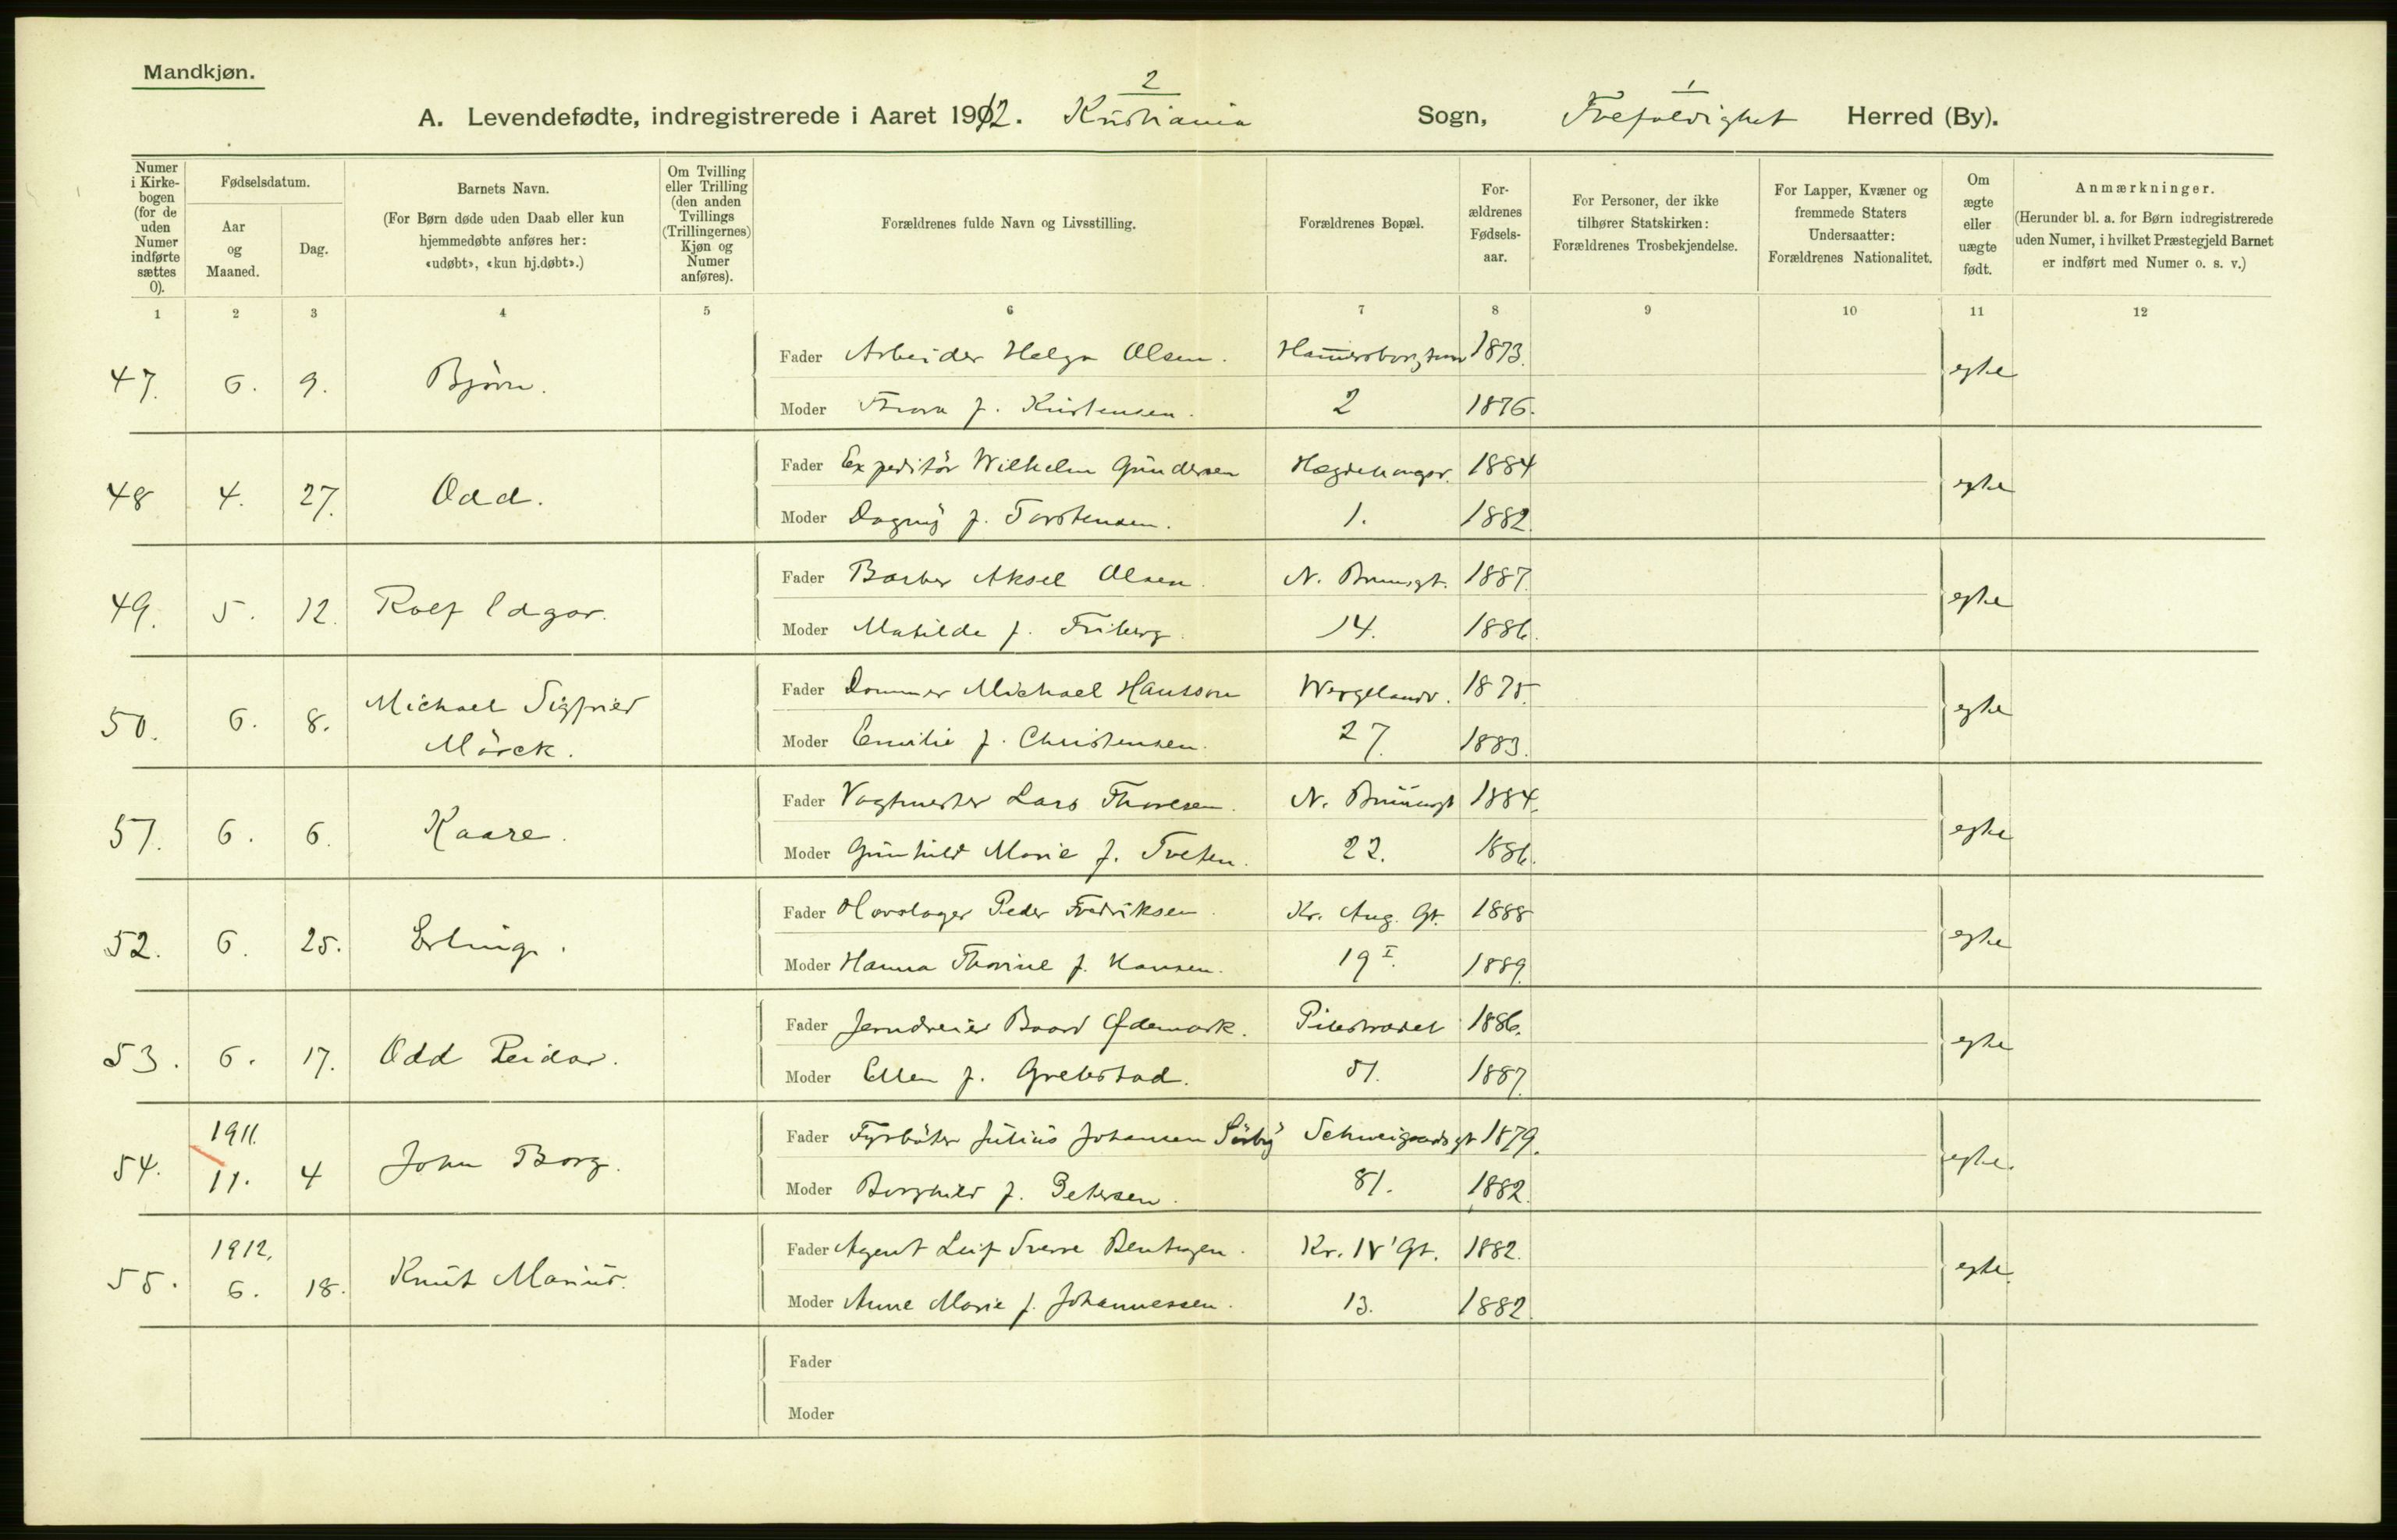 Mandkjøn.
2
1
A. Levendefødte, indregistrerede i Aaret 1912. Kristiania Sogn, Trefoldighet Herred (By).
Numer i Kirkebogen (for de uden Numer indførte sættes 0).
Fødselsdatum.
Aar og Maaned.
Dag.
Barnets Navn.
(For Børn døde uden Daab eller kun hjemmedøbte anføres her: «udøbt», «kun hj.døbt».)
Om Tvilling eller Trilling (den anden Tvillings (Trillingernes) Kjøn og Numer anføres).
Forældrenes fulde Navn og Livsstilling.
Forældrenes Bopæl.
Forældrenes Fødselsaar.
For Personer, der ikke tilhører Statskirken: Forældrenes Trosbekjendelse.
For Lapper, Kvæner og fremmede Staters Undersaatter: Forældrenes Nationalitet.
Om ægte eller uægte født.
Anmærkninger.
(Herunder bl. a. for Børn indregistrerede uden Numer, i hvilket Præstegjeld Barnet er indført med Numer o. s. v.)
1 2 3 4 5 6 7 8 9 10 11 12
Fader Arbeider Helge Olsen. 1873.
47. 6. 9. Bjørn. egte
Moder Thora f. Kristensen. 2 1876.
Fader Expeditör Wilhelm Gundersen Hægdehaugsv. 1884
48 4. 27. Odd. egte
Moder Dagny f. Torstensen. 1. 1882.
Fader Barber Aksel Olsen. N. Brunsgt. 1887.
49. 5. 12. Rolf Edgar. egte
Moder Matilde f. Friberg. 14. 1886.
Fader Dommer Michael Hansson Wergelandsv. 1875.
50. 6. 8. Michael Sigfried Mörck. egte
Moder Emilie f. Christensen. 27. 1883.
Fader Vagtmester Lars Thoresen. N. Brunsgt 1884.
51. 6. 6. Kaare. egte
Moder Gunhild Marie f. Tveten. 22. 1886.
Fader Hovslager Peder Fredriksen. Kr. Aug. Gt. 1888
52. 6. 25. Erling. egte
Moder Hanna Thorine f. Hansen. 19 I. 1889.
Fader Jerndreier Baard Ødemark. Pilestrædet 1886.
53. 6. 17. Odd Reidar. egte
Moder Ellen f. Grebstad. 51. 1887.
1911.
Fader Fyrbøter Julius Johansen Sörby Schweigaardsgt 1879.
54. 11. 4 John Borg. egte.
Moder Borghild f. Petersen. 81. 1882.
1912.
Fader Agent Leif Sverre Bentzen. Kr. IV' Gt. 1882.
55. 6. 18. Knut Marius. egte
Moder Anne Marie f. Johannessen. 13. 1882.
Fader
Moder